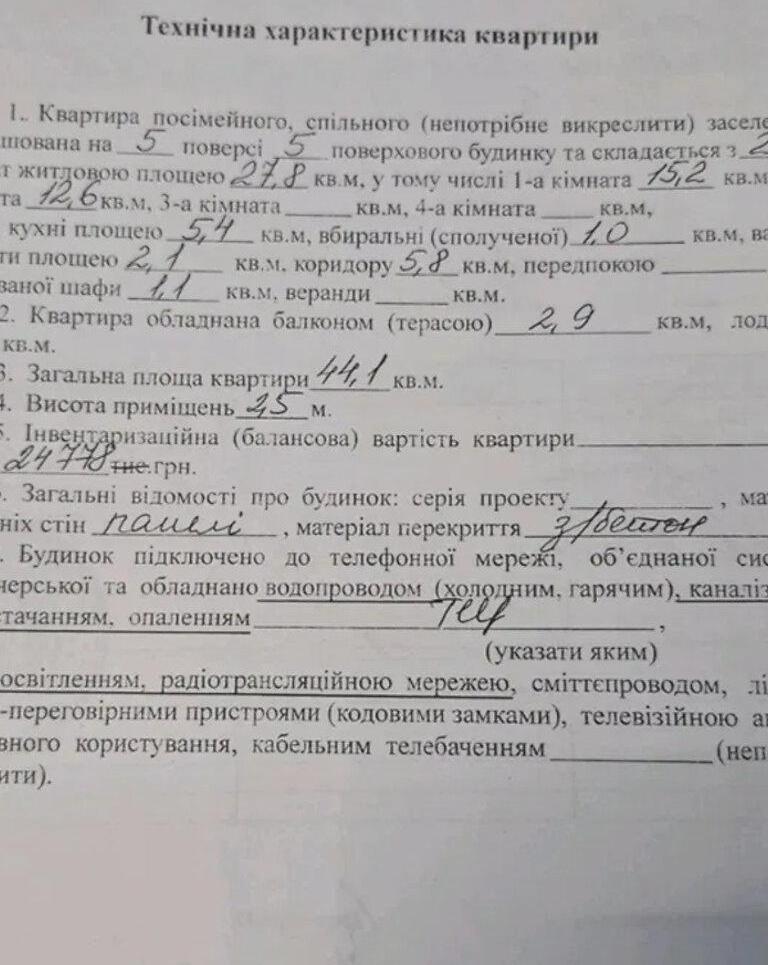 Технічна характеристика квартири
1. Квартира посімейного, спільного (непотрібне викреслити) заселе
шована на 5 поверсі 5 поверхового будинку та складається з 2
т житловою площею 27,8 кв.м, у тому числі 1-а кімната 15,2 кв.м
та 12,6 кв.м, 3-а кімната ______ кв.м, 4-а кімната _____ кв.м,
кухні площею 5,4 кв.м, вбиральні (сполученої) 1,0 кв.м, ва
ти площею 2,1 кв.м. коридору 5,8 кв.м, передпокою ________
ваної шафи 1,1 кв.м, веранди ______ кв.м.
2. Квартира обладнана балконом (терасою) 2,9 кв.м, лод
кв.м.
3. Загальна площа квартири 44,1 кв.м.
4. Висота приміщень 2,5 м.
5. Інвентаризаційна (балансова) вартість квартири____________
24778 тис.грн.
. Загальні відомості про будинок: серія проекту________, ма
ніх стін панелі, матеріал перекриття з/бетон
. Будинок підключено до телефонної мережі, об’єднаної сис
черської та обладнано водопроводом (холодним, гарячим), каналіз
стачанням, опаленням ТЕЦ,
(указати яким)
освітленням, радіотрансляційною мережею, сміттєпроводом, лі
-переговірними пристроями (кодовими замками), телевізійною а
вного користування, кабельним телебаченням __________ (неп
ити).